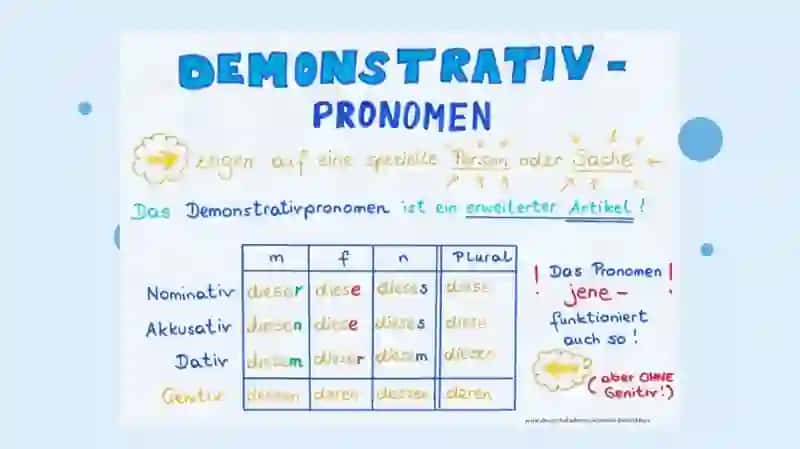 DEMONSTRATIV-
PRONOMEN
zeigen auf eine spezielle Person oder Sache
Das Demonstrativpronomen ist ein erweiterter Artikel!
m f n Plural
Nominativ dieser diese dieses diese
Akkusativ diesen diese dieses diese
Dativ diesem dieser diesem diesen
Genitiv dessen deren dessen deren
! Das Pronomen !
jene-
funktioniert
auch so!
(aber OHNE
Genitiv!)